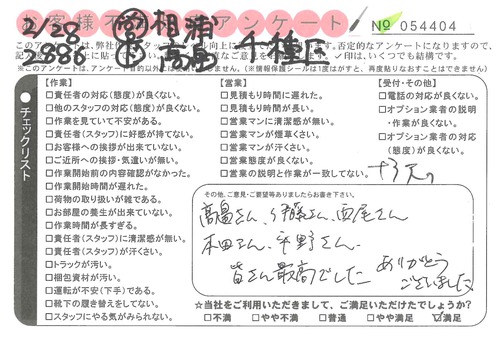 お客様アンケート
№ 054404
2/28
2886
相浦
高畠
千種区
チェックリスト
【作業】
□責任者の対応(態度)が良くない。
□他のスタッフの対応(態度)が良くない。
□作業を見ていて不安がある。
□責任者(スタッフ)に好感が持てない。
□お客様への挨拶が出来ていない。
□ご近所への挨拶・気遣いが無い。
□作業開始前の内容確認がなかった。
□作業開始時間が遅れた。
□荷物の取り扱いが雑である。
□お部屋の養生が出来ていない。
□作業時間が長すぎる。
□責任者(スタッフ)に清潔感が無い。
□責任者(スタッフ)が汗くさい。
□トラックが汚い。
□梱包資材が汚い。
□運転が不安(下手)である。
□靴下の履き替えをしてない。
□スタッフにやる気がみられない。
【営業】
□見積もり時間に遅れた。
□見積もり時間が長い。
□営業マンに清潔感が無い。
□営業マンが煙草くさい。
□営業マンが汗くさい。
□営業態度が良くない。
□営業の説明と作業が一致してない。
【受付・その他】
□電話の対応が良くない。
□オプション業者の説明
・作業が良くない。
□オプション業者の対応
(態度)が良くない。
その他、ご意見・ご要望等ありましたらお書き下さい。
高畠さん、伊藤さん、西尾さん
本田さん、平野さん、
皆さん最高でした
ありがとう
ございました
☆当社をご利用いただきまして、ご満足いただけたでしょうか?
□不満 □やや不満 □普通 □やや満足 ☑満足